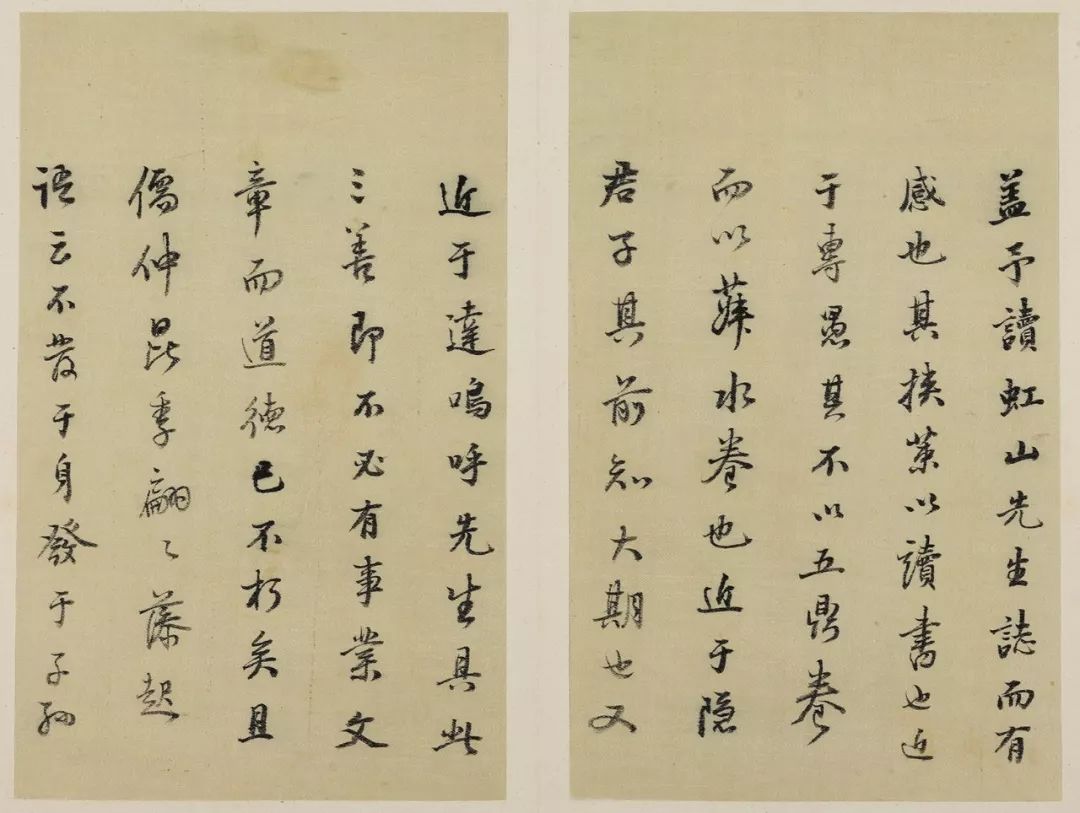 盖予讀虹山先生誌而有
感也其挟策以讀書也近
于專愚其不以五鼎養
而以菽水養也近于隐
君子其前知大期也又
近于達嗚呼先生具此
三善即不必有事業文
章而道德已不朽矣且
儒仲昆季翩〻蔭起
语云不發于身發于子孙